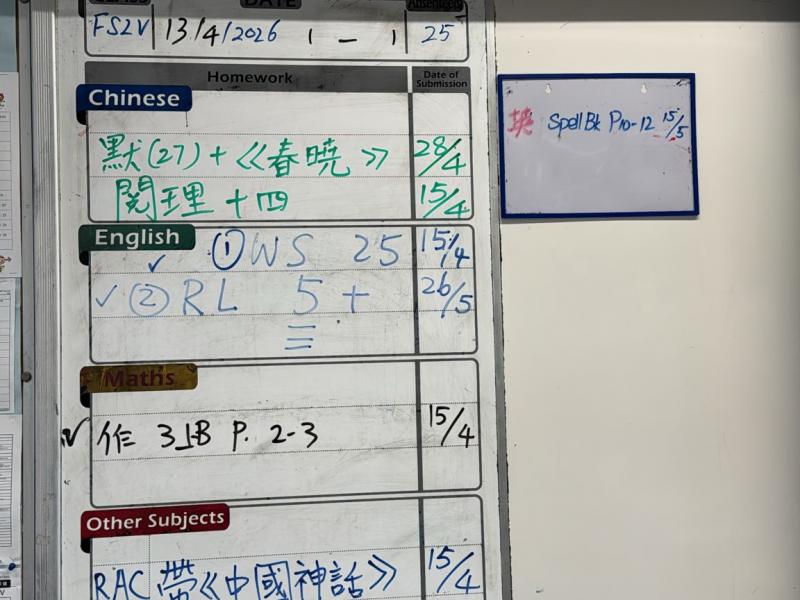 DATE
FS2V 13/4/2026 ( 一 ) 25
Homework Date of Submission
Chinese
默(27)+《春曉》 28/4
閱理十四 15/4
English
①WS 25 15/4
②RL 5+ 26/5
Maths
作 3上B P. 2-3 15/4
Other Subjects
RAC 帶《中國神話》 15/4
英 Spell Bk P10-12 15/5